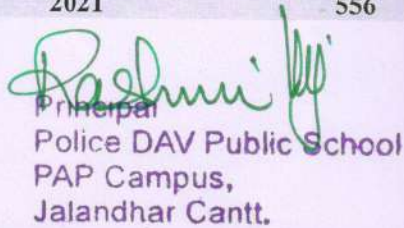 2021 556
Rashmi Vij
Principal
Police DAV Public School
PAP Campus,
Jalandhar Cantt.